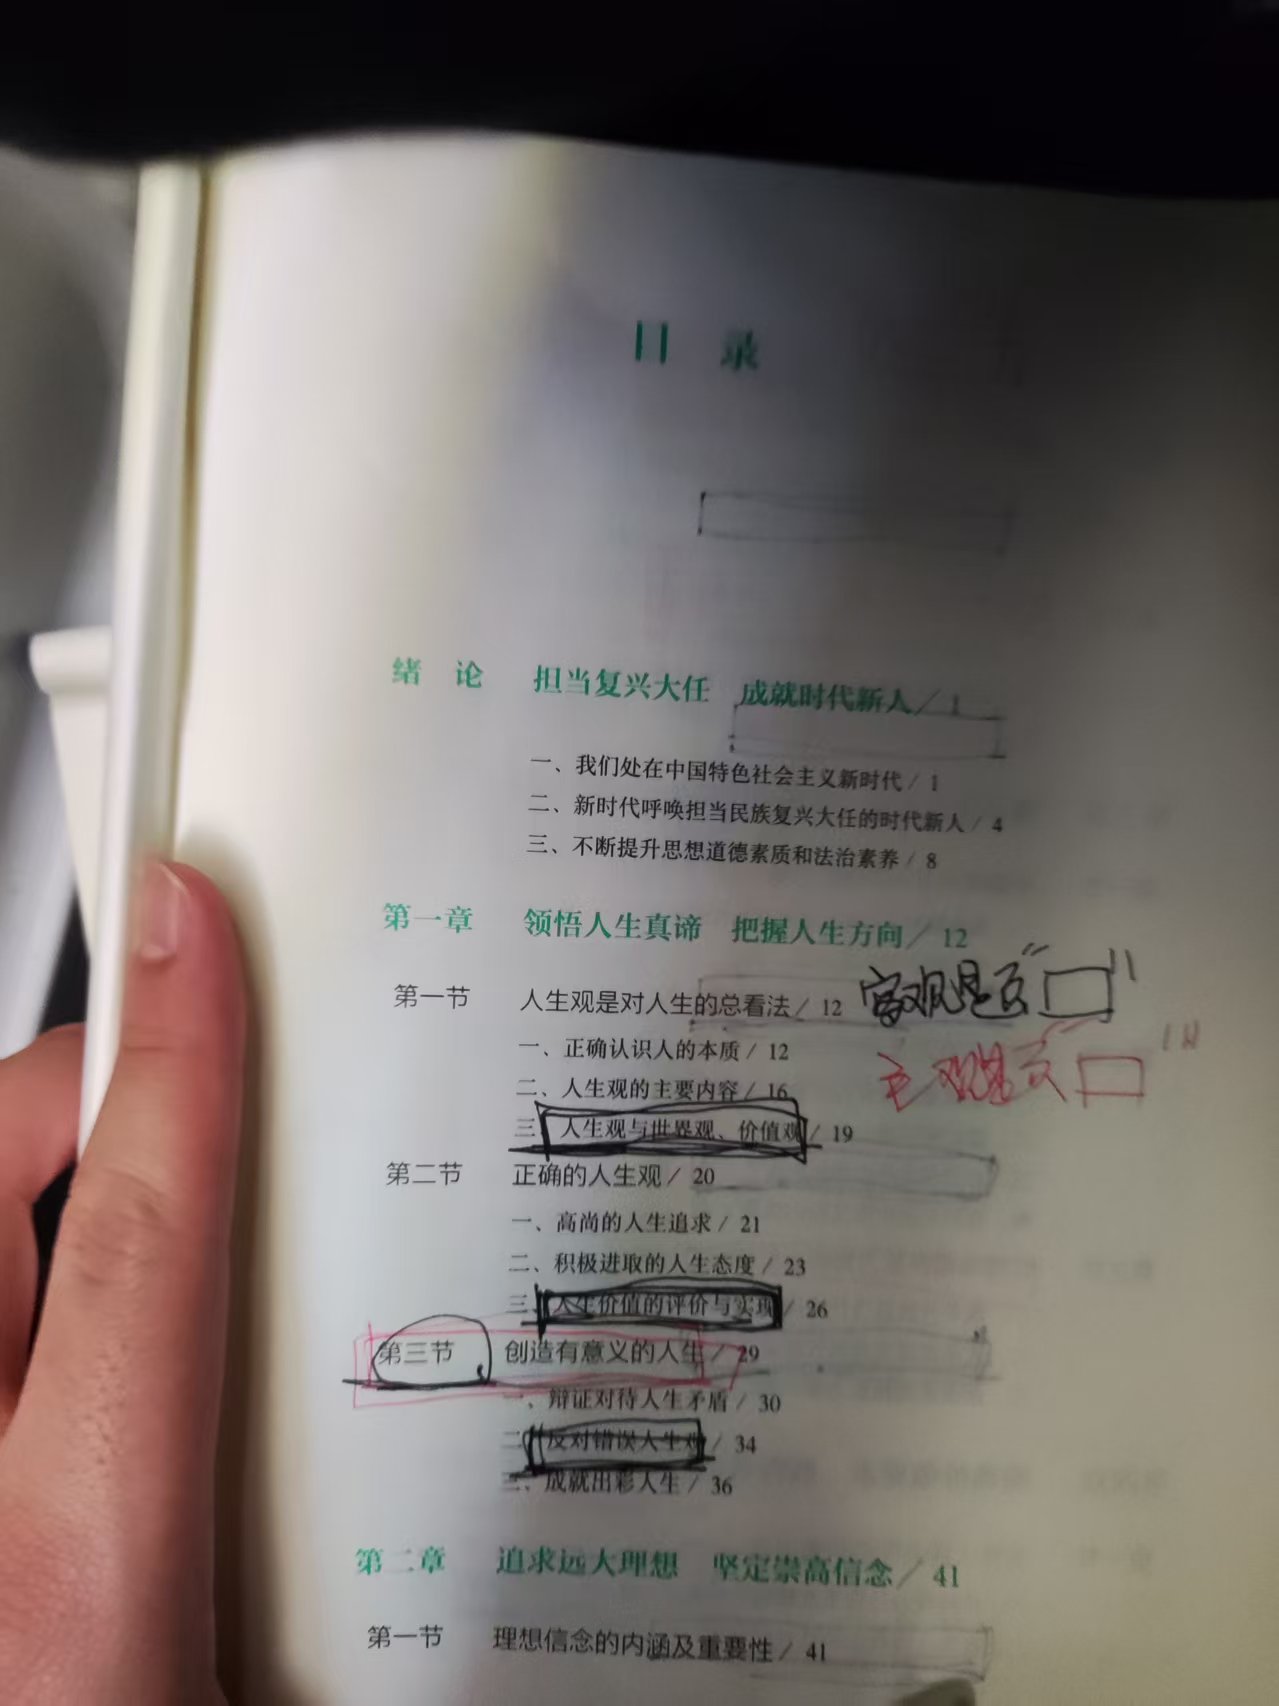 目 录
绪 论 担当复兴大任 成就时代新人 / 1
一、我们处在中国特色社会主义新时代 / 1
二、新时代呼唤担当民族复兴大任的时代新人 / 4
三、不断提升思想道德素质和法治素养 / 8
第一章 领悟人生真谛 把握人生方向 / 12
第一节 人生观是对人生的总看法 / 12 客观是
一、正确认识人的本质 / 12 主观是
二、人生观的主要内容 / 16
三、人生观与世界观、价值观 / 19
第二节 正确的人生观 / 20
一、高尚的人生追求 / 21
二、积极进取的人生态度 / 23
三、人生价值的评价与实现 / 26
第三节 创造有意义的人生 / 29
一、辩证对待人生矛盾 / 30
二、反对错误人生观 / 34
三、成就出彩人生 / 36
第二章 追求远大理想 坚定崇高信念 / 41
第一节 理想信念的内涵及重要性 / 41